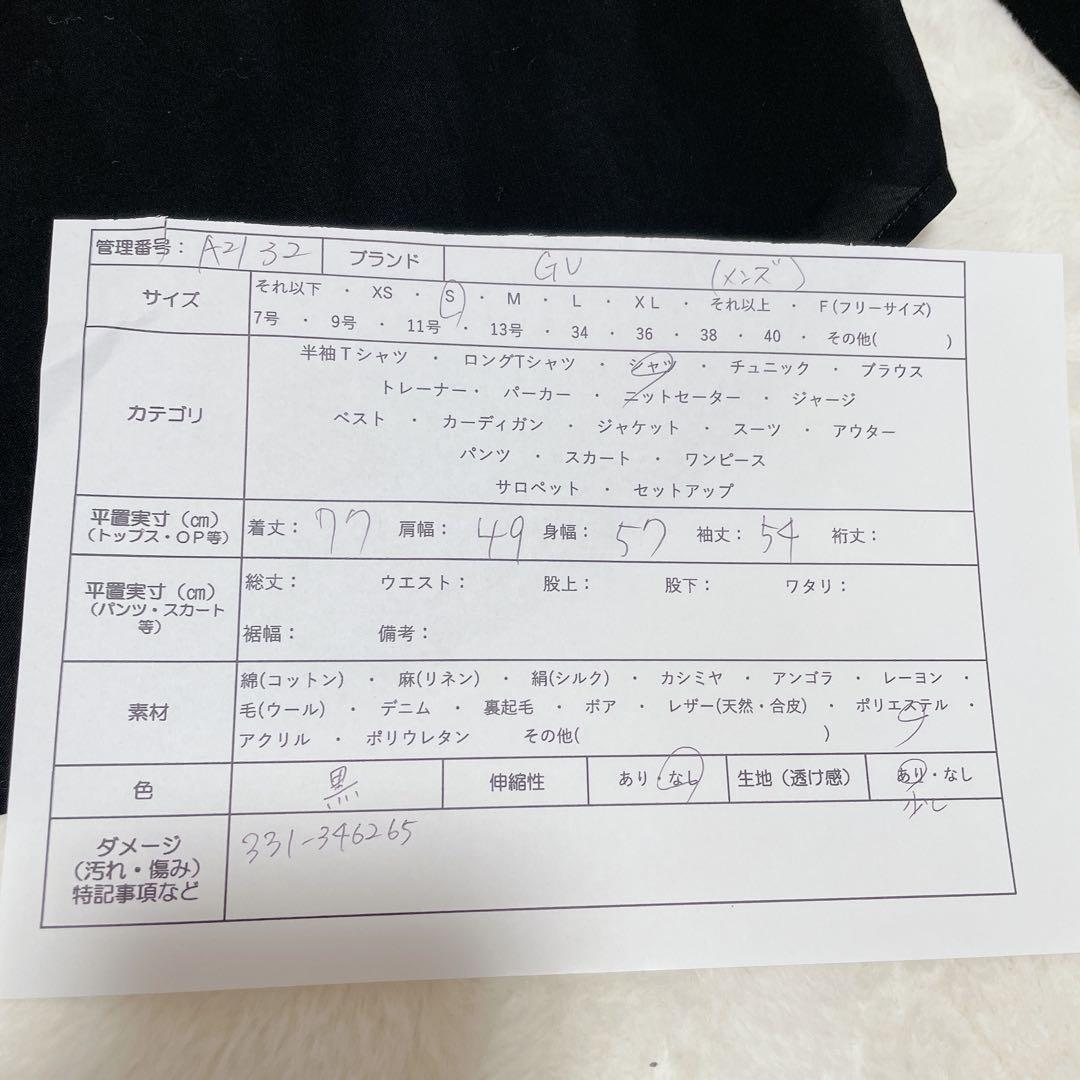 管理番号： A2132 ブランド GU (メンズ)
サイズ それ以下 ・ XS ・ S ・ M ・ L ・ XL ・ それ以上 ・ F(フリーサイズ)
7号 ・ 9号 ・ 11号 ・ 13号 ・ 34 ・ 36 ・ 38 ・ 40 ・ その他( )
カテゴリ 半袖Tシャツ ・ ロングTシャツ ・ シャツ ・ チュニック ・ ブラウス
トレーナー・ パーカー ・ ニットセーター ・ ジャージ
ベスト ・ カーディガン ・ ジャケット ・ スーツ ・ アウター
パンツ ・ スカート ・ ワンピース
サロペット ・ セットアップ
平置実寸（㎝）
（トップス・OP等） 着丈： 77 肩幅： 49 身幅： 57 袖丈： 54 裄丈：
平置実寸（㎝）
（パンツ・スカート
等）
総丈： ウエスト： 股上： 股下： ワタリ：
裾幅： 備考：
素材 綿(コットン) ・ 麻(リネン) ・ 絹(シルク) ・ カシミヤ ・ アンゴラ ・ レーヨン ・
毛(ウール) ・ デニム ・ 裏起毛 ・ ボア ・ レザー(天然・合皮) ・ ポリエステル ・
アクリル ・ ポリウレタン その他( )
色 黒 伸縮性 あり・なし 生地（透け感） あり・なし
少し
ダメージ
（汚れ・傷み）
特記事項など
331-346265